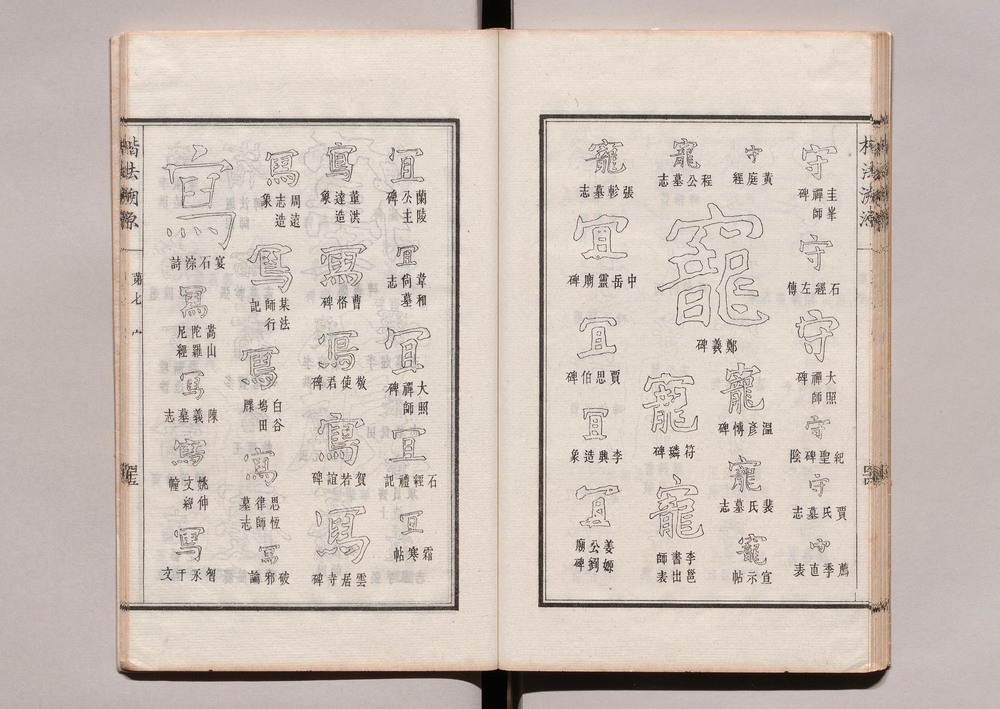 楷法溯源
守 圭峯禪師碑
守 石經左傳
守 大照禪師碑
守 紀聖碑陰
守 賈氏墓志
守 薦季直表
守 黃庭經
寵 程公墓志
寵 鄭羲碑
寵 溫彥博碑
寵 裴氏墓志
寵 宣示帖
寵 符璘碑
寵 李邕書出師表
寵 張軫墓志
宜 中岳靈廟碑
宜 賈思伯碑
宜 李典造象
宜 姜嫄公劉廟碑
宜 蘭陵公主碑
宜 韋和尚墓志
宜 大照禪師碑
宜 石經禮記
宜 霜寒帖
寫 董洪達造象
寫 曹恪碑
寫 敬使君碑
寫 賀若誼碑
寫 雲居寺碑
寫 周遠志造象
寫 某法師行記
寫 白谷塢田牒
寫 思恆律師墓志
寫 破邪論
寫 宴石淙詩
寫 嵩山陀羅尼經
寫 陳義墓志
寫 姚仲文經幢
寫 智永千文
楷法溯源 第七 宀